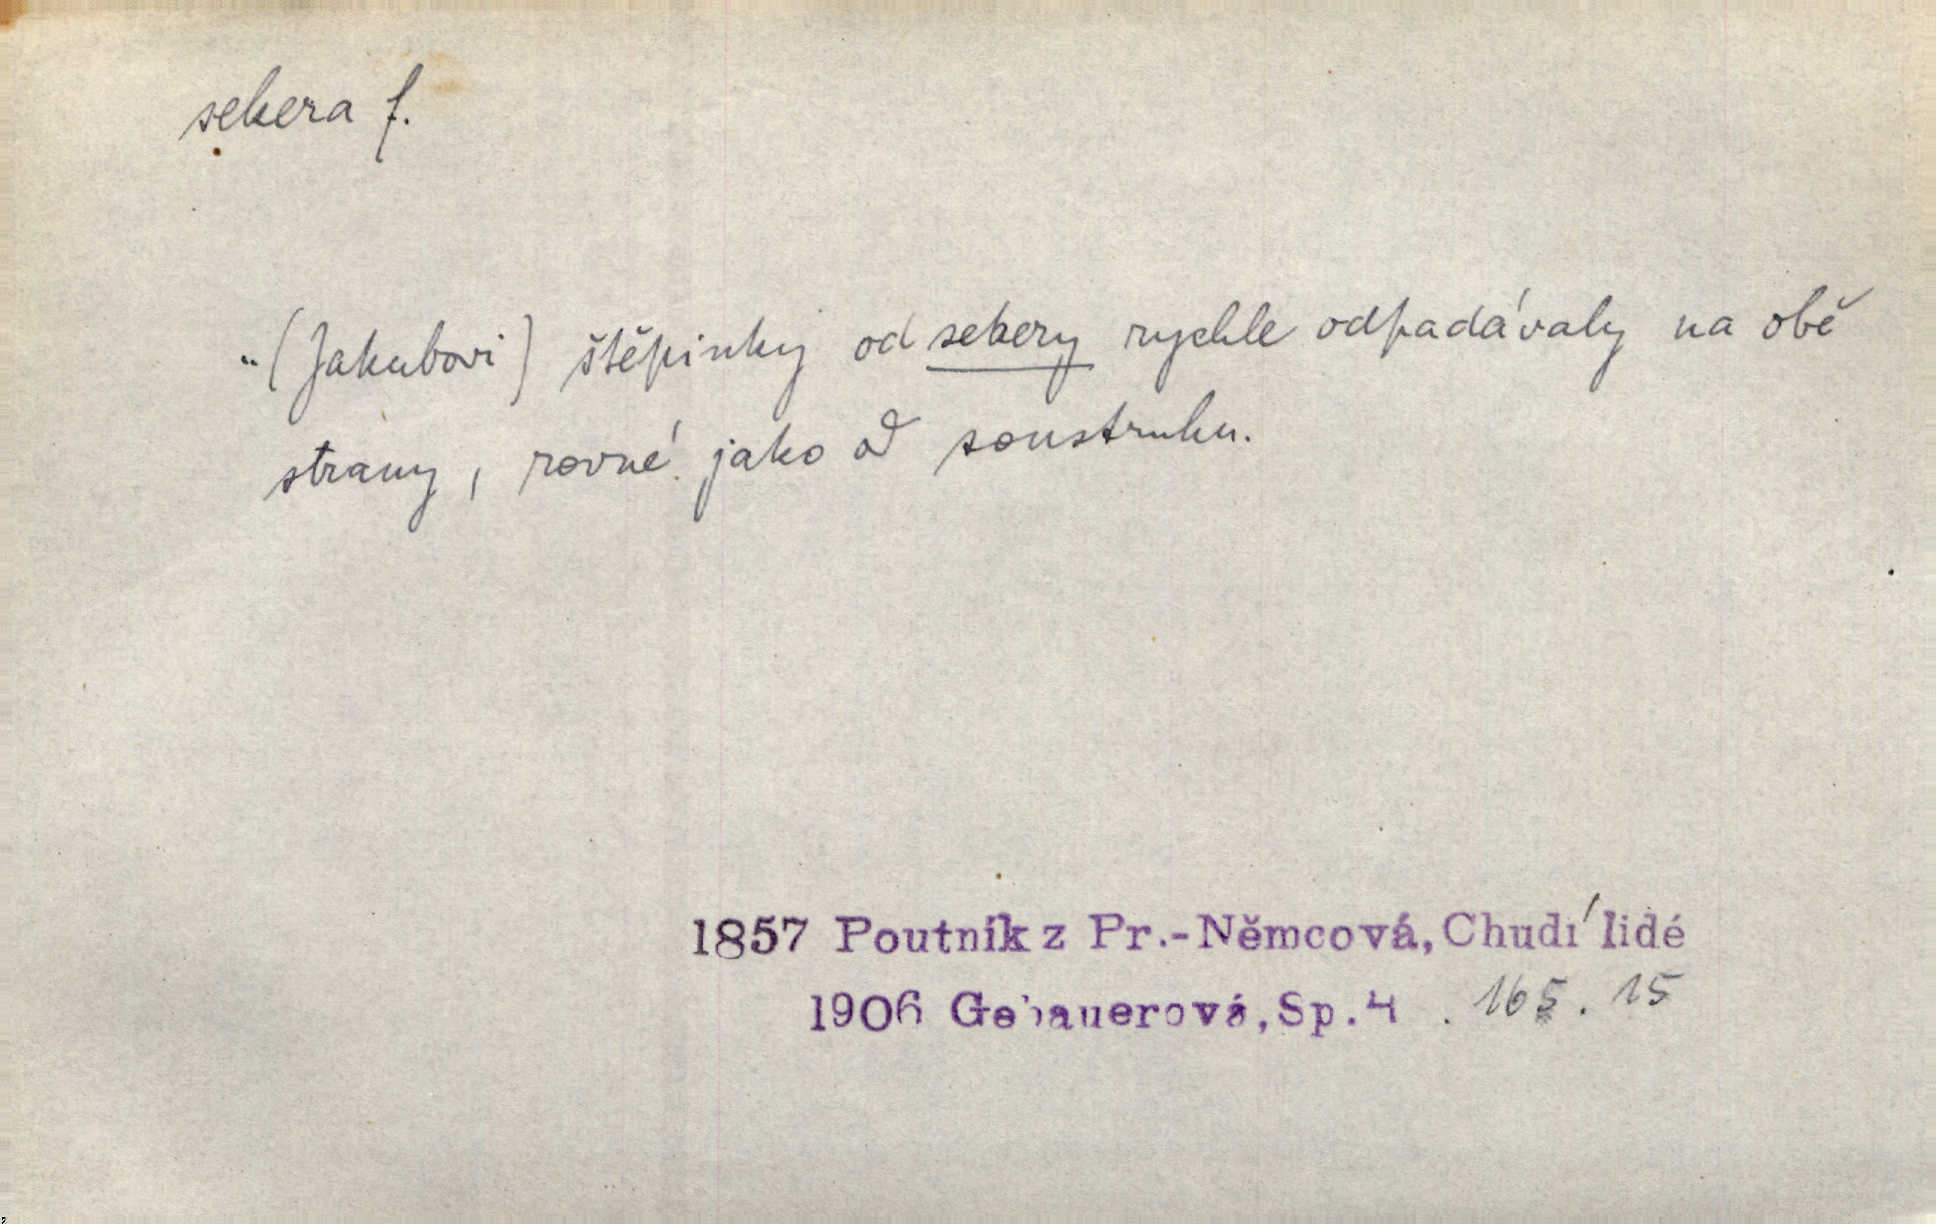 sekera f.
„(Jakubovi) štěpinky od sekery rychle odpadávaly na obě
strany, rovné jako od soustruhu.
1857 Poutník z Pr.-Němcová, Chudí lidé
1906 Gebauerová, Sp.4 . 165. 15